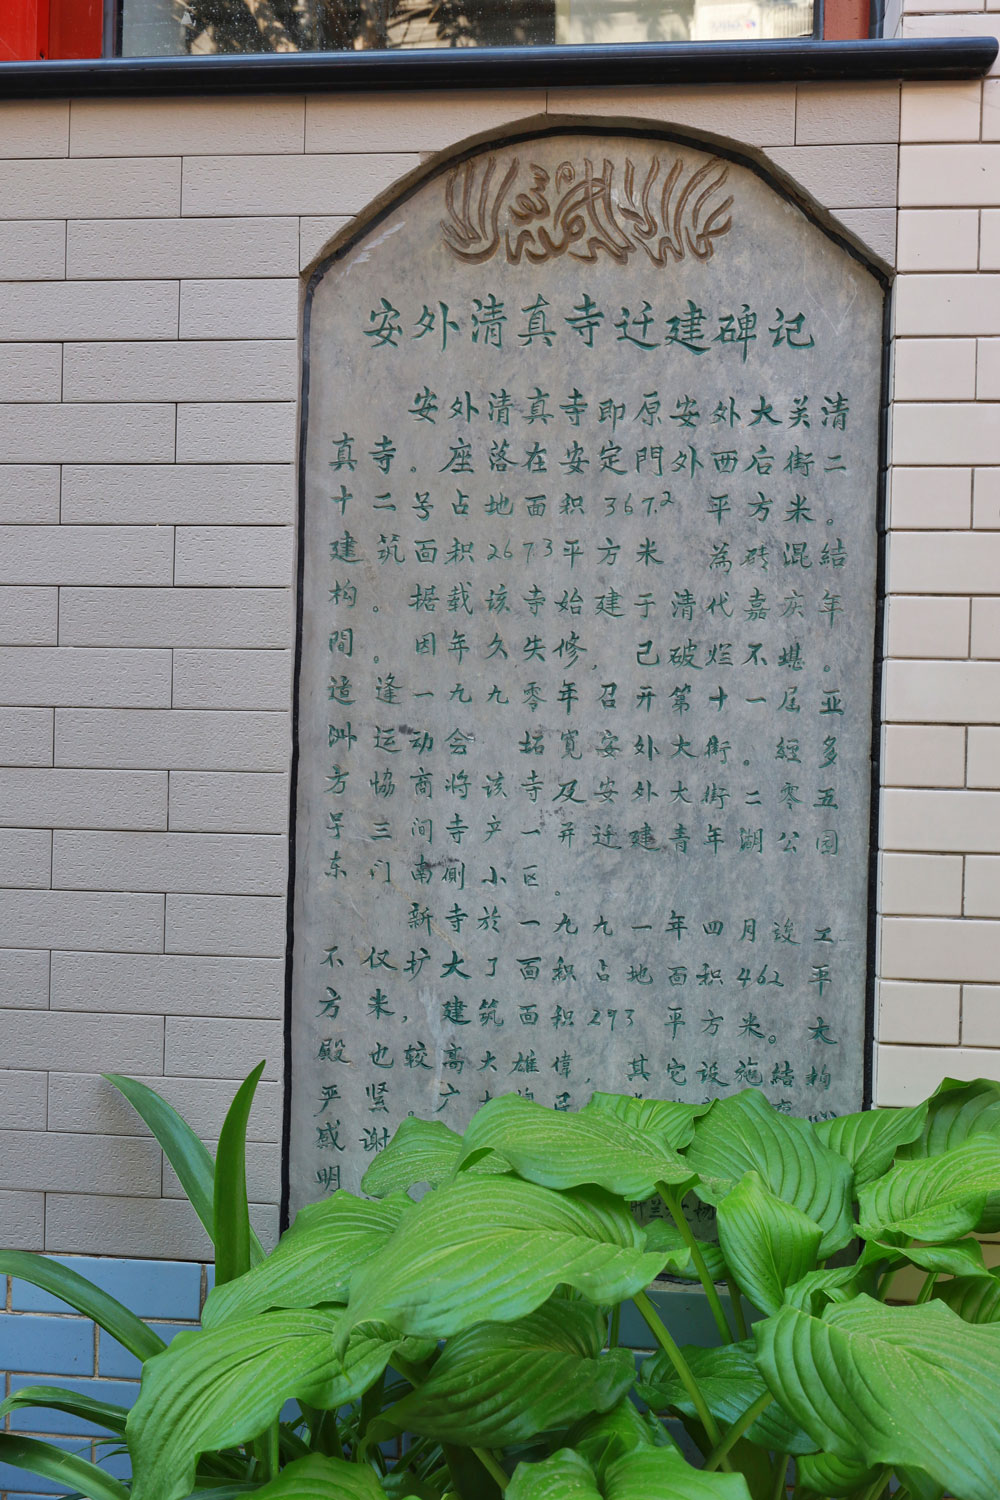 安外清真寺迁建碑记
安外清真寺即原安外大关清
真寺。座落在安定門外西后街二
十二号占地面积367.2平方米。
建筑面积267.3平方米為砖混結
构。据载该寺始建于清代嘉庆年
間。因年久失修，已破烂不堪。
适逢一九九零年召开第十一届亚
洲运动会拓宽安外大街。經多
方協商将该寺及安外大街二零五
号三间寺产一并迁建青年湖公园
东门南側小区。
新寺於一九九一年四月竣工
不仅扩大了面积占地面积462平
方米，建筑面积293平方米。大
殿也较高大雄偉，其它设施結构
严紧。广大
感谢
明